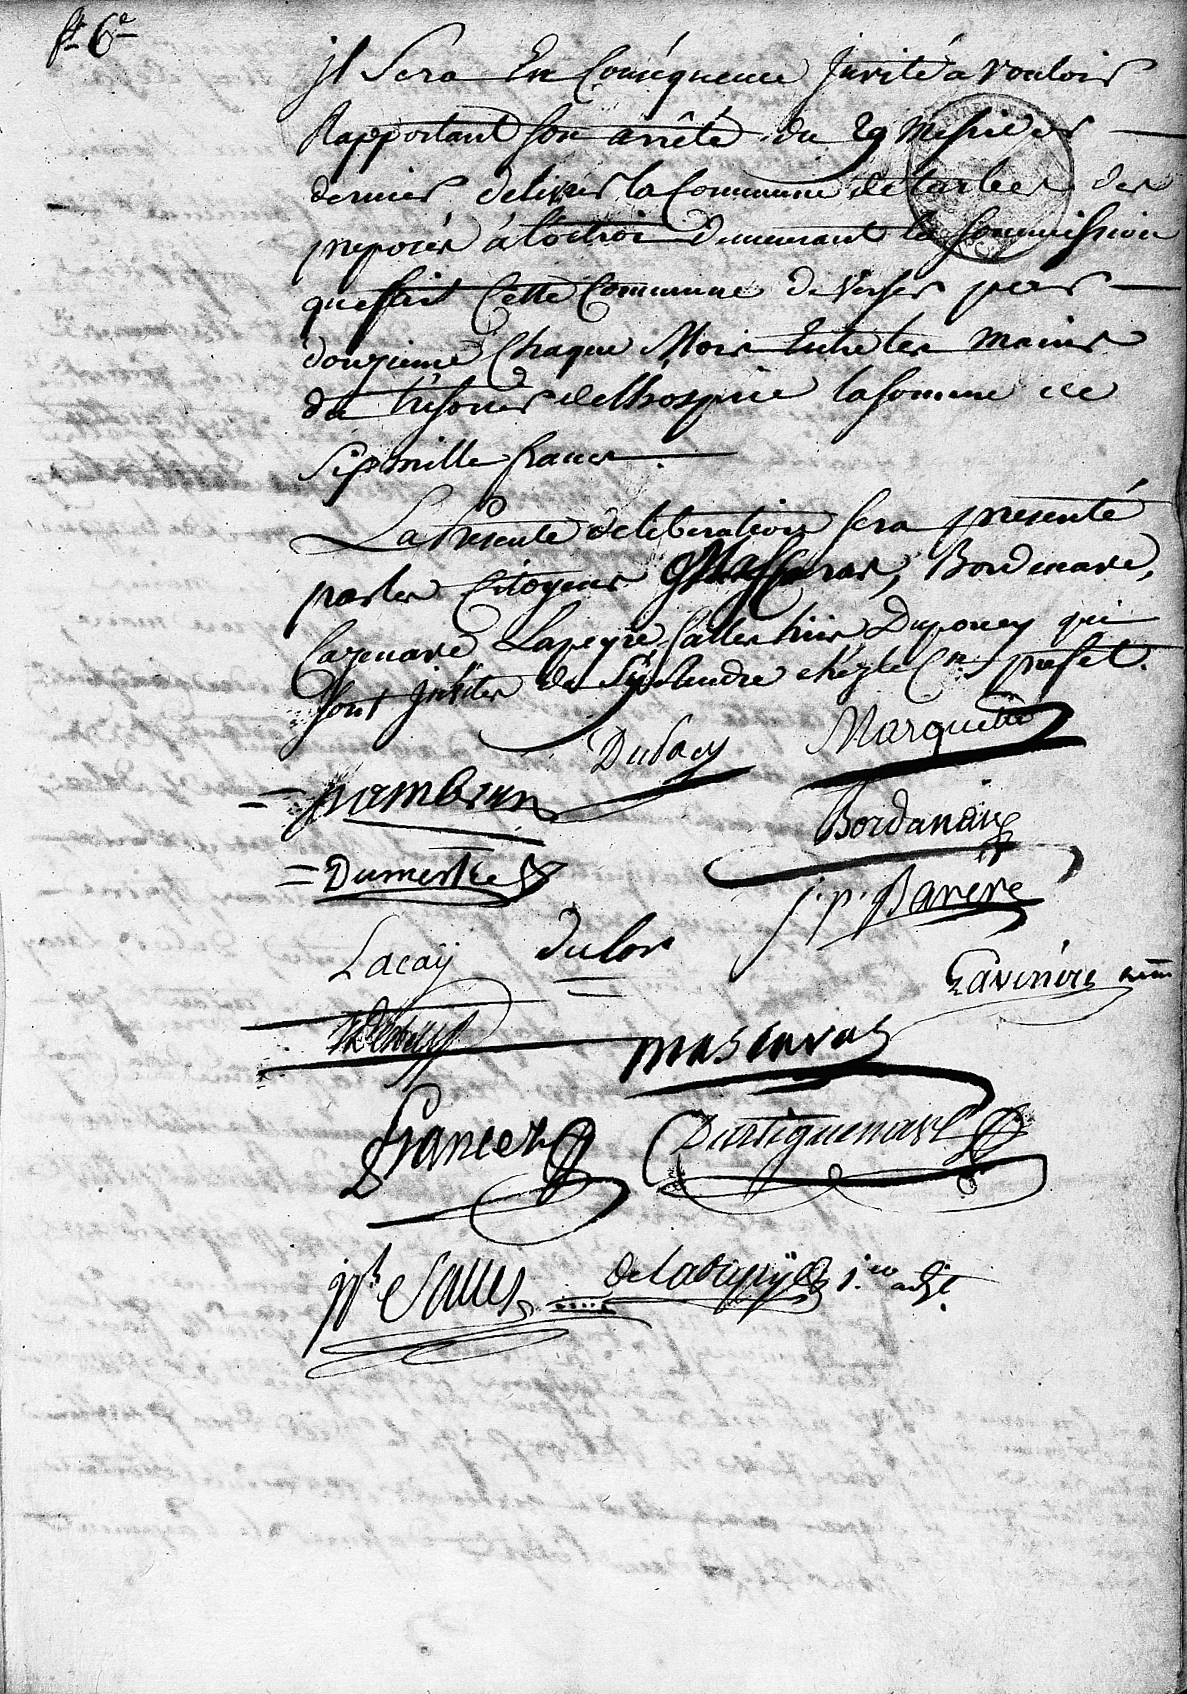 fo 6e
jl Sera En Conséquence Jnvité a Vouloir
Rapportant Son arrêté du 29 Messidor
dernier delivrer la Commune de tarbes des
preposés à loctroi demeurant la Soumission
que fait Cette Commune de Verser par
douzieme Chaque Mois Entre les Mains
du trésorier de lhospice la Somme de
Six mille francs.
La Presente deliberation Sera presenté
par les Citoyens Mascaras, Bordenave,
Cazenave Lapeyre Salles Dupouey qui
Sont jnvités de Se Rendre chez le Cen prefet.
Dubacq Marquette
Bordanaix
= Dumestre
j. p. Barere
Lacaÿ dulor
Lavinére
mascaras
Francez Dartiguenave
Salles 1.er adjt.